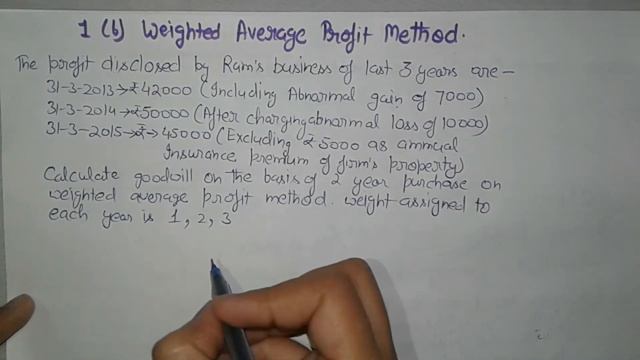 1 (b) Weighted Average Profit Method.
The profit disclosed by Ram's business of last 3 years are -
31-3-2013→₹42000 (Including Abnormal gain of 7000)
31-3-2014→₹50000 (After charging abnormal loss of 10000)
31-3-2015→₹→45000 (Excluding ₹5000 as annual
Insurance premium of firm's property)
Calculate goodwill on the basis of 2 year purchase on
weighted average profit method. weight assigned to
each year is 1, 2, 3